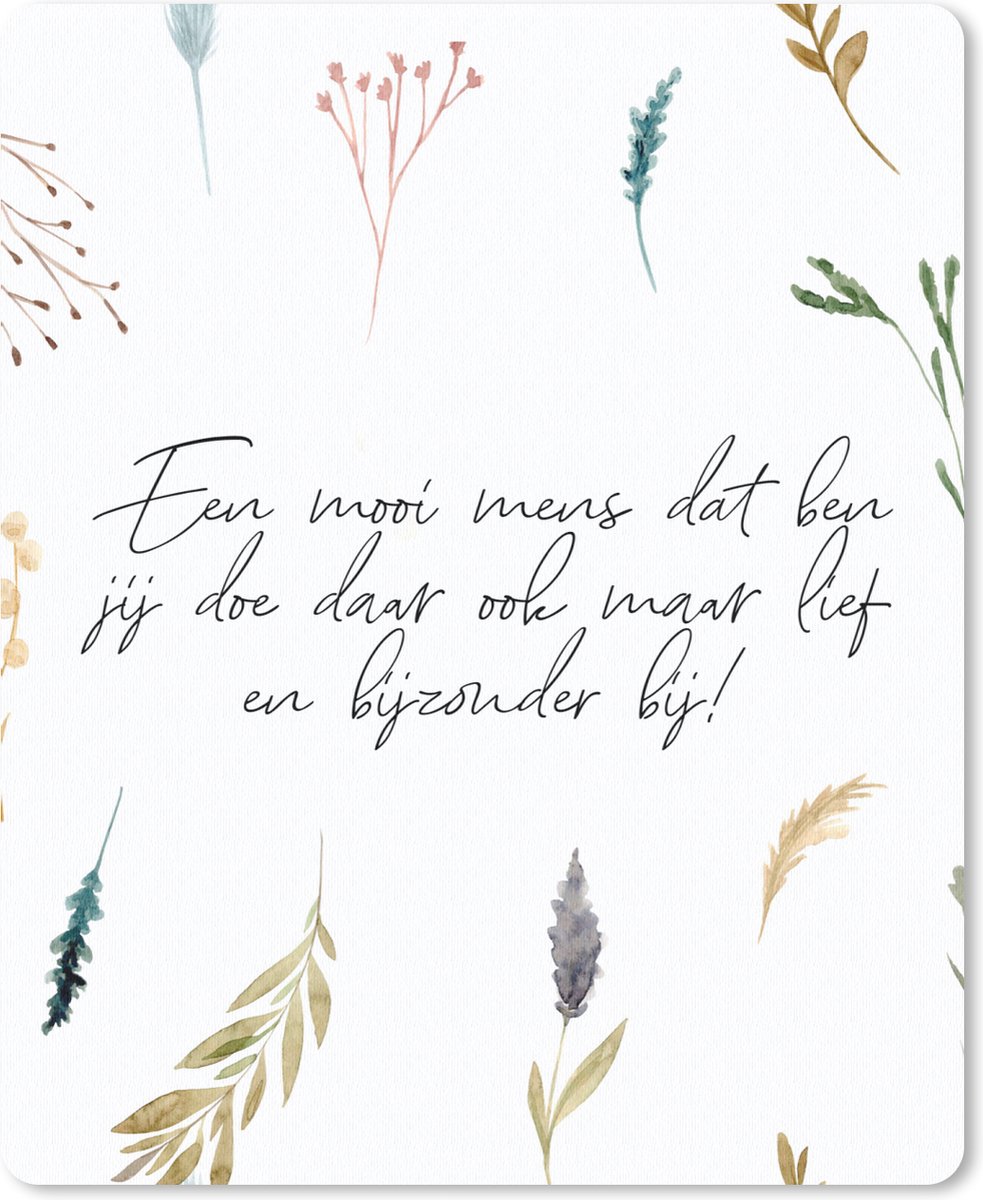 Een mooi mens dat ben
jij doe daar ook maar lief
en bijzonder bij!